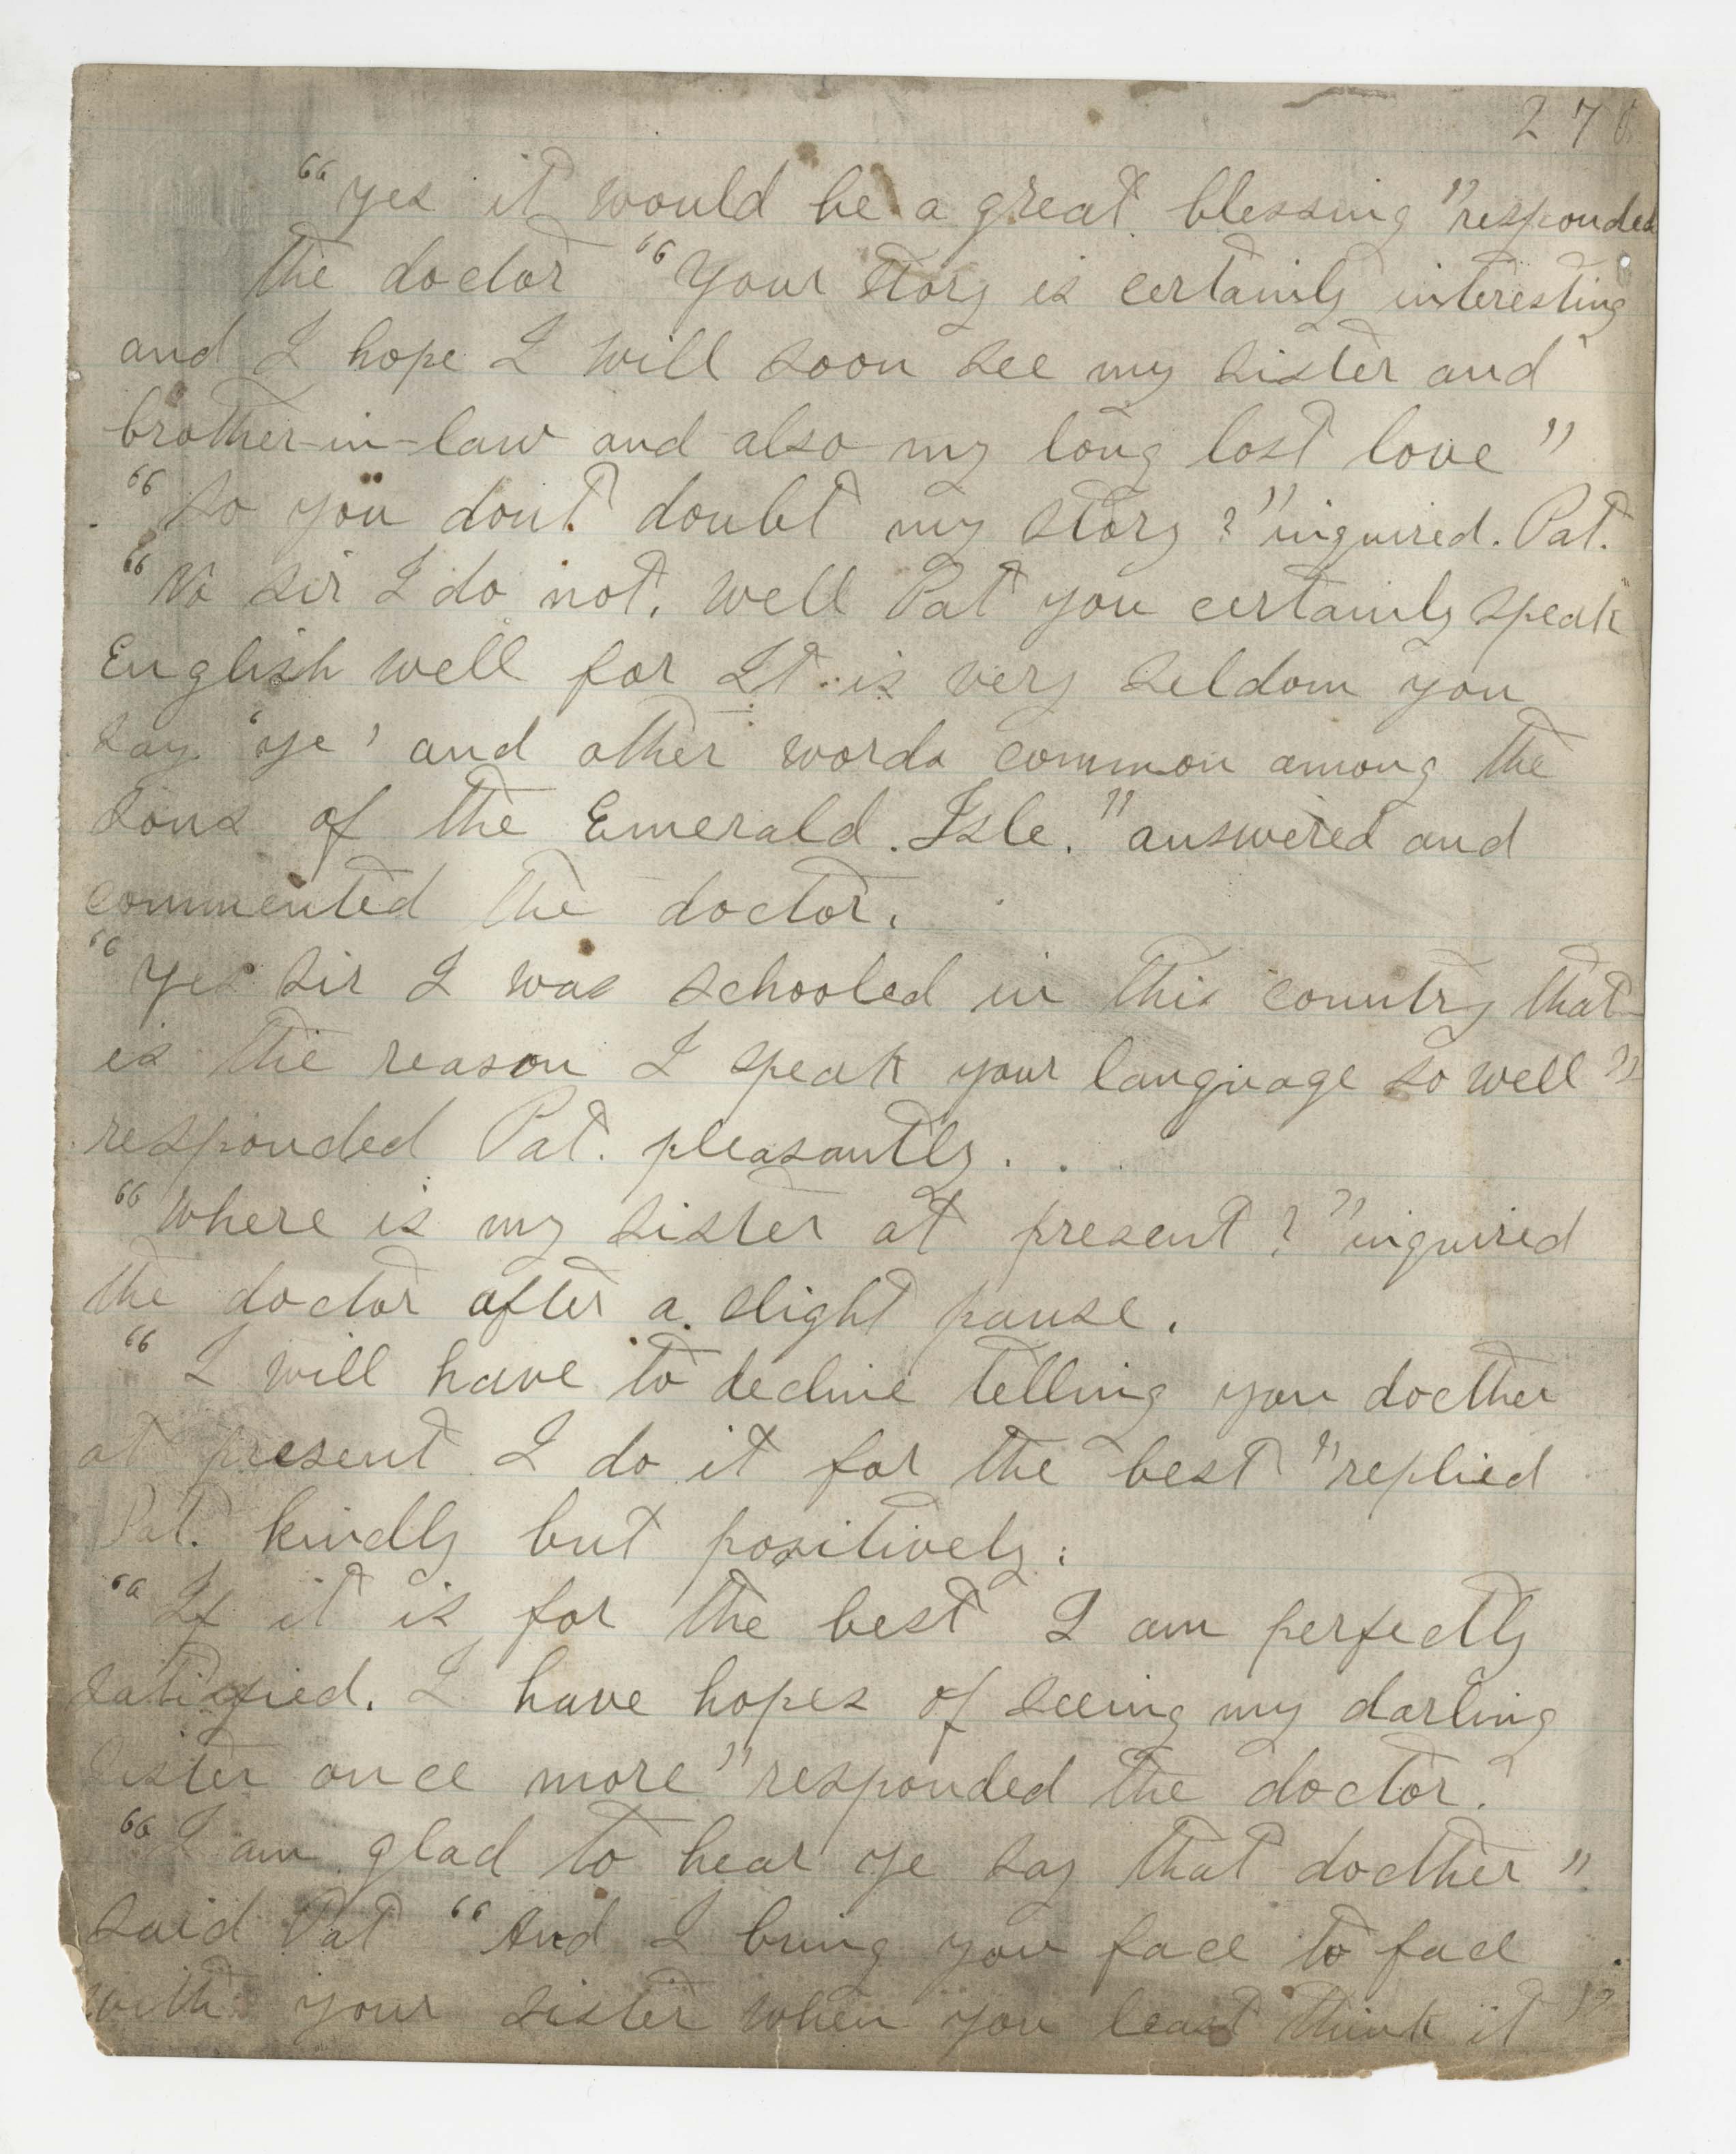 27
"yes it would be a great blessing" responded
the doctor "Your story is certainly interesting
and I hope I will soon see my sister and
brother-in-law and also my long lost love"
"So you dont doubt my story?" inquired. Pat.
"No sir I do not. Well Pat you certainly speak
English well for It is very seldom you
say 'ye' and other words common among the
sons of the Emerald Isle." answered and
commented the doctor.
"Yes sir I was schooled in this country that
is the reason I speak your language so well"
responded Pat. pleasantly.
"Where is my sister at present?" inquired
the doctor after a slight pause.
"I will have to decline telling you docther
at present I do it for the best" replied
Pat. kindly but positively.
"If it is for the best I am perfectly
satisfied. I have hopes of seeing my darling
sister once more" responded the doctor.
"I am glad to hear ye say that docther"
said Pat "And I bring you face to face
with your sister when you least think it"